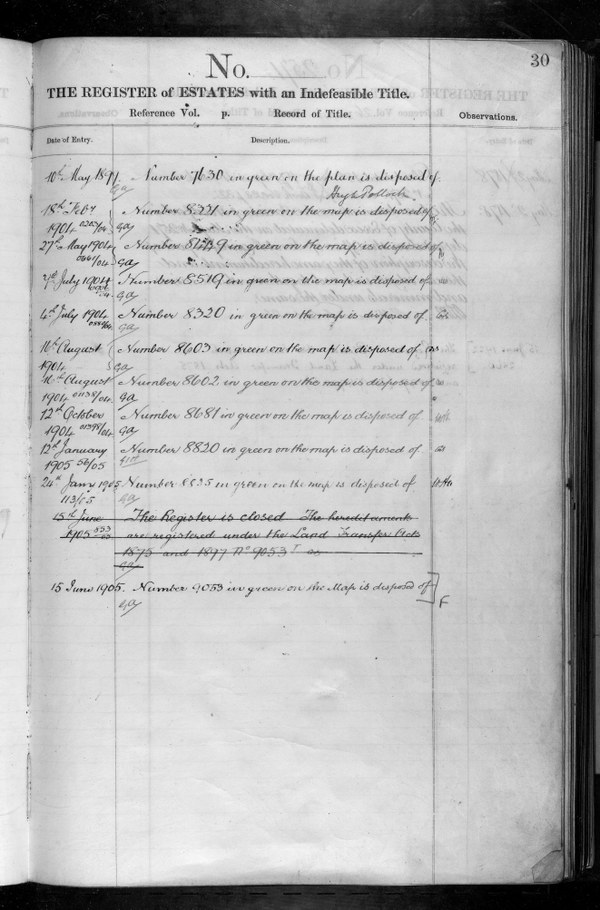 30
No.
THE REGISTER of ESTATES with an Indefeasible Title.
Reference Vol. p. Record of Title.
Observations.
Date of Entry.
Description.
10th May 1897. Number 7630 in green on the plan is disposed of.
Hugh Pollock.
18th Feby Number 8321 in green on the map is disposed of
1904 0203/04 GA
27th May 1904 Number 8439 in green on the map is disposed of
0661/04 GA
7th July 1904 Number 8519 in green on the map is disposed of
GA
4th July 1904 Number 8320 in green on the map is disposed of
GA
16th August Number 8603 in green on the map is disposed of
1904 GA
16th August Number 8602 in green on the map is disposed of
1904 01138/04 GA
12th October Number 8681 in green on the map is disposed of
1904 01398/04 GA
12th January Number 8820 in green on the map is disposed of
1905 56/05
24th Jany 1905 Number 8835 in green on the map is disposed of
113/05 GA
15th June The Register is closed The hereditaments
1905 are registered under the Land Transfer Acts
1875 and 1897 No 9053
GA
15 June 1905. Number 9053 in green on the Map is disposed of
GA